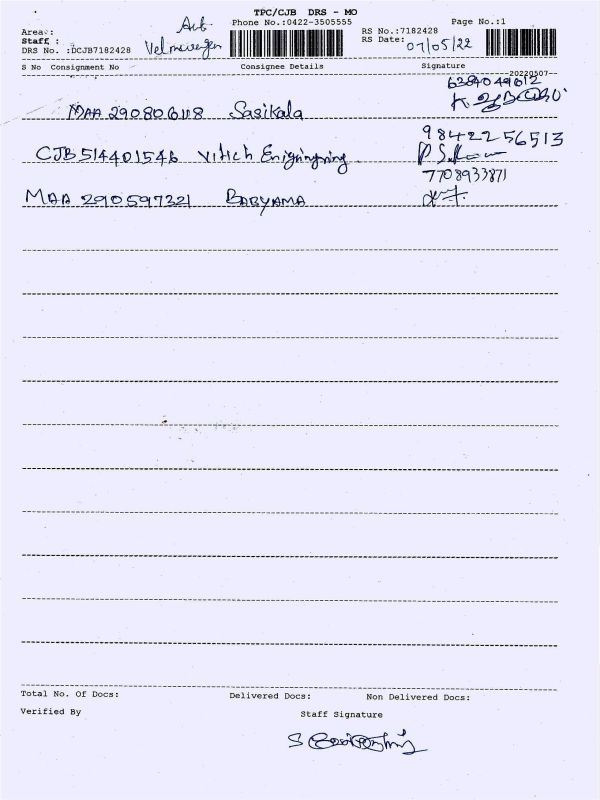 TPC/CJB DRS - MO
Area : Phone No.:0422-3505555 Page No.:1
Staff : Velmurugan RS No.:7182428
DRS No. :DCJB7182428 RS Date: 07/05/22
S No Consignment No Consignee Details Signature
--20220507--
6384049612
MAA 290806118 Sasikala
9842256513
CJB 514401546 Vitich Enigingning
7708933871
MAA 290597321 BABYAMA
Total No. Of Docs: Delivered Docs: Non Delivered Docs:
Verified By Staff Signature